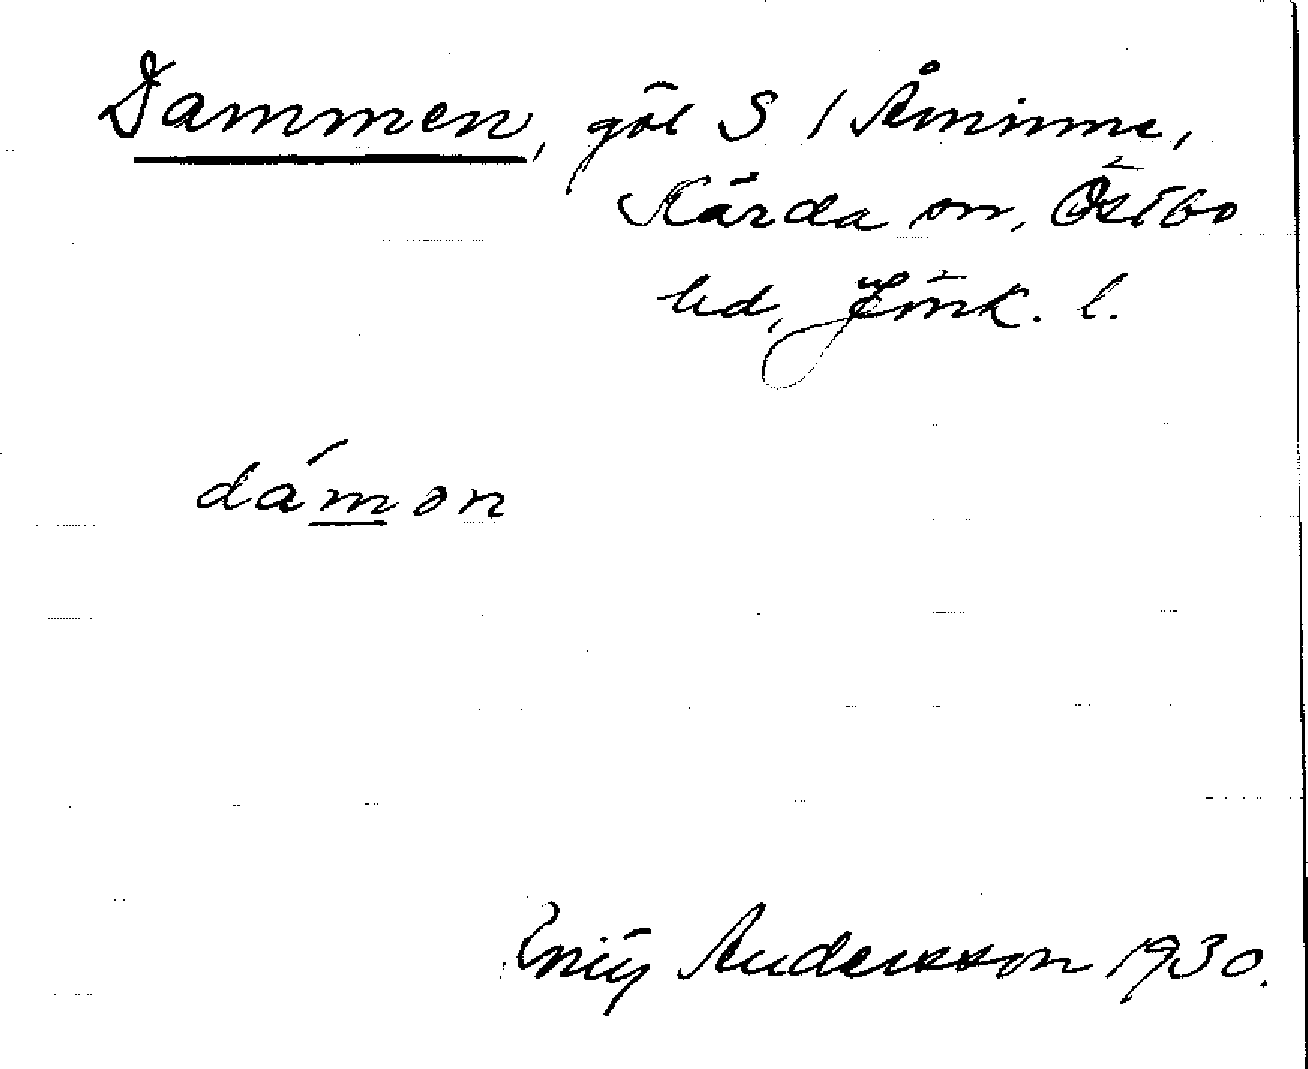 Dammen, göl S / Åminne,
Kärda sn, Östbo
hd, Jönk. l.
dámon
Andersson 1930.